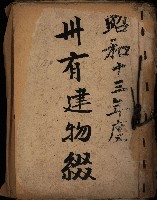 昭和十三年度
卅有建物綴